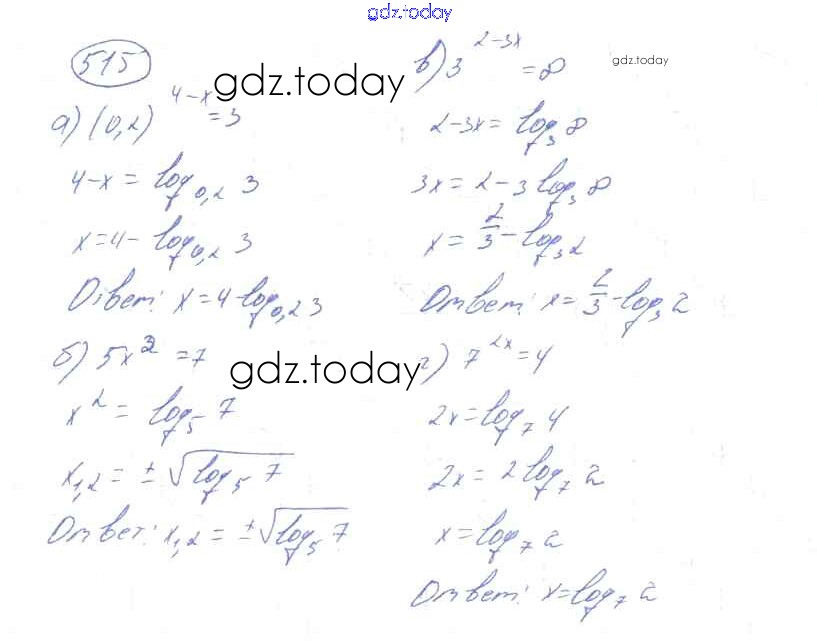 gdz.today
515
а) (0,2)^{4-x} = 3
4-x = log_{0,2} 3
x = 4- log_{0,2} 3
Ответ: x = 4-log_{0,2} 3
б) 5x^2 = 7
x^2 = log_5 7
x_{1,2} = ± √log_5 7
Ответ: x_{1,2} = ±√log_5 7
в) 3^{2-3x} = 8
2-3x = log_3 8
3x = 2-3 log_3 8
x = 2/3 - log_3 2
Ответ: x = 2/3 - log_3 2
г) 7^{2x} = 4
2x = log_7 4
2x = 2 log_7 2
x = log_7 2
Ответ: x = log_7 2
gdz.today
gdz.today
gdz.today